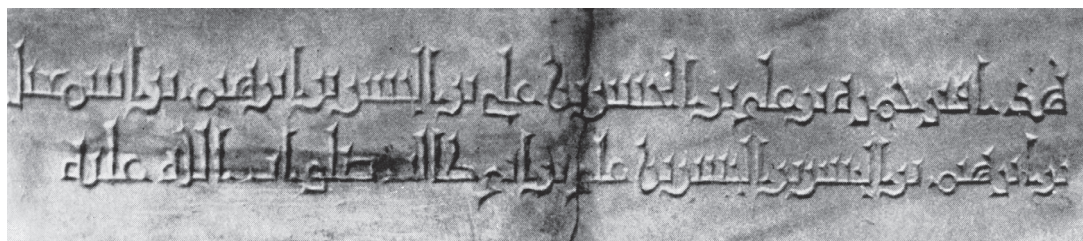 هذا قبر حمزه بن علي بن الحسن بن علي بن الحسن بن ابرهيم بن اسمعيل
بن ابرهيم بن الحسن بن الحسن بن علي بن ابي طالب صلوات الله عليه